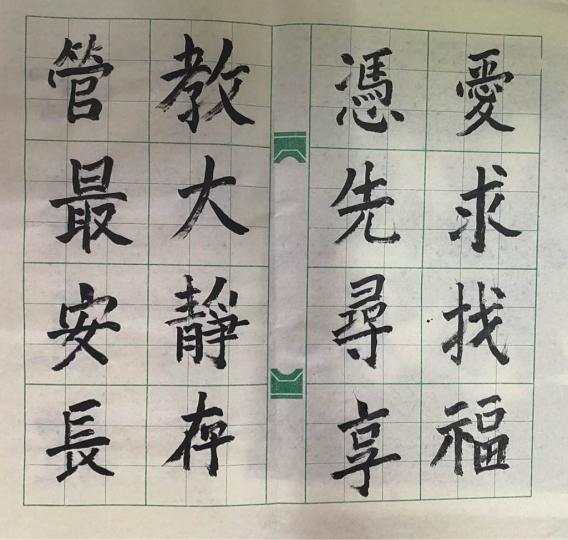 管教憑愛
最大先求
安靜尋找
長存享福